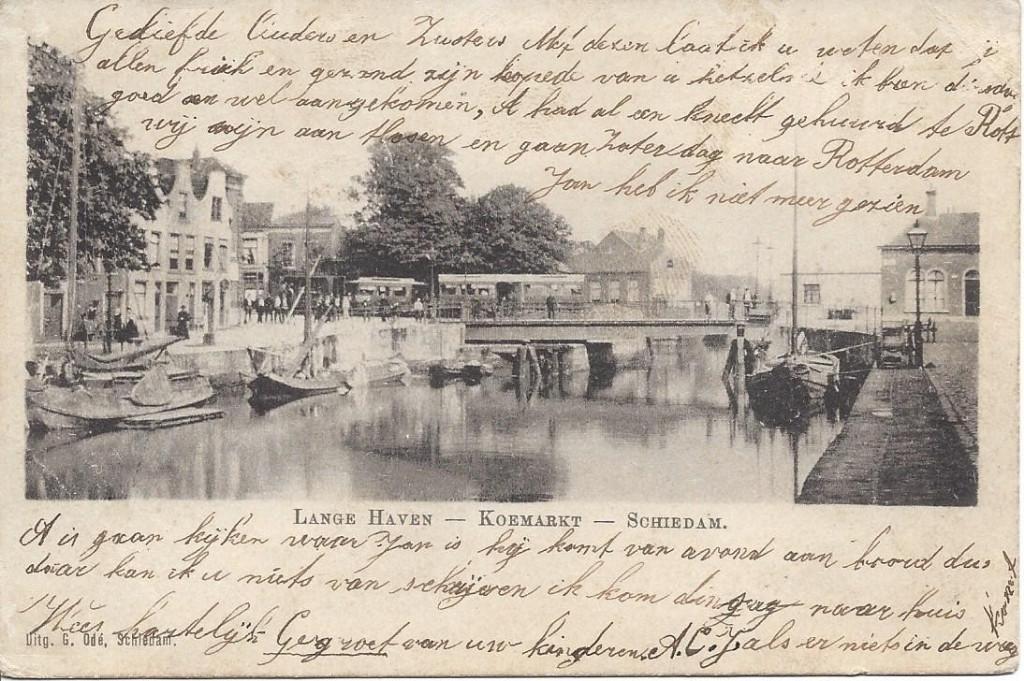 Geliefde Ouders en Zusters Met dezen laat ik u weten dat i
allen frisch en gezond zijn hopede van u hetzelve ik ben d
goed en wel aangekomen, A had al een knecht gehuurd te Rott
wij zijn aan Lossen en gaan Zaterdag naar Rotterdam
Jan heb ik niet meer gezien
LANGE HAVEN — KOEMARKT — SCHIEDAM.
A is gaan kijken waar Jan is hij komt van avond aan boord dus
daar kan ik u niets van schrijven ik kom dingsag naar huis
Wees hartelijk Gegroet van uw kinderen A.C.J als er niets in de weg
komt
Uitg. G. Odé, Schiedam.